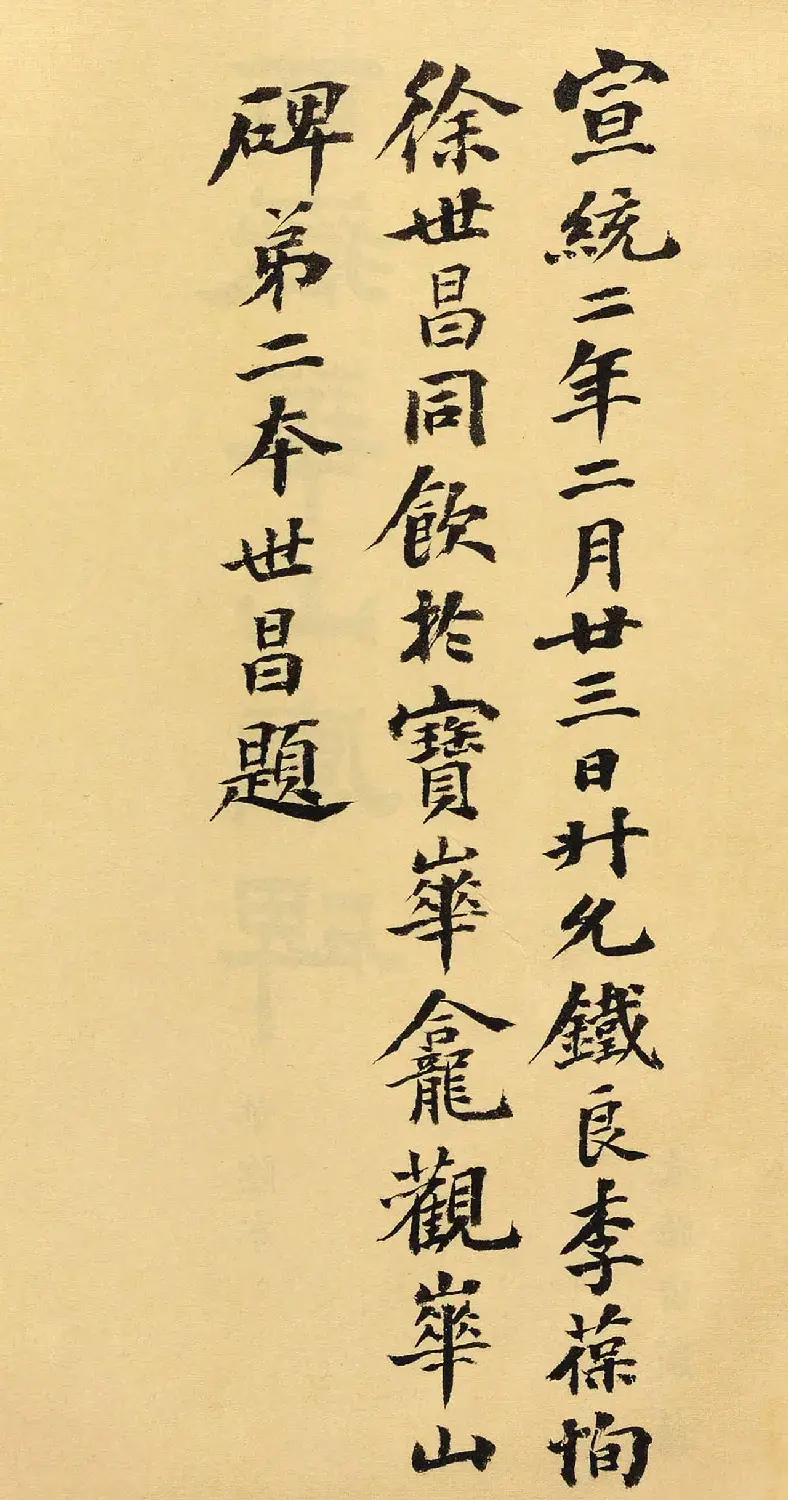 宣統二年二月廿三日升允鐵良李葆恂
徐世昌同飲於寶崋龕觀崋山
碑弟二本世昌題